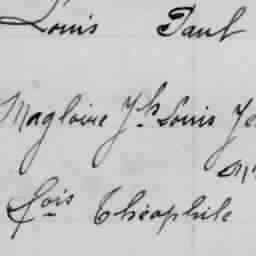 Louis Paul
Magloire Jh Louis
fois Théophile